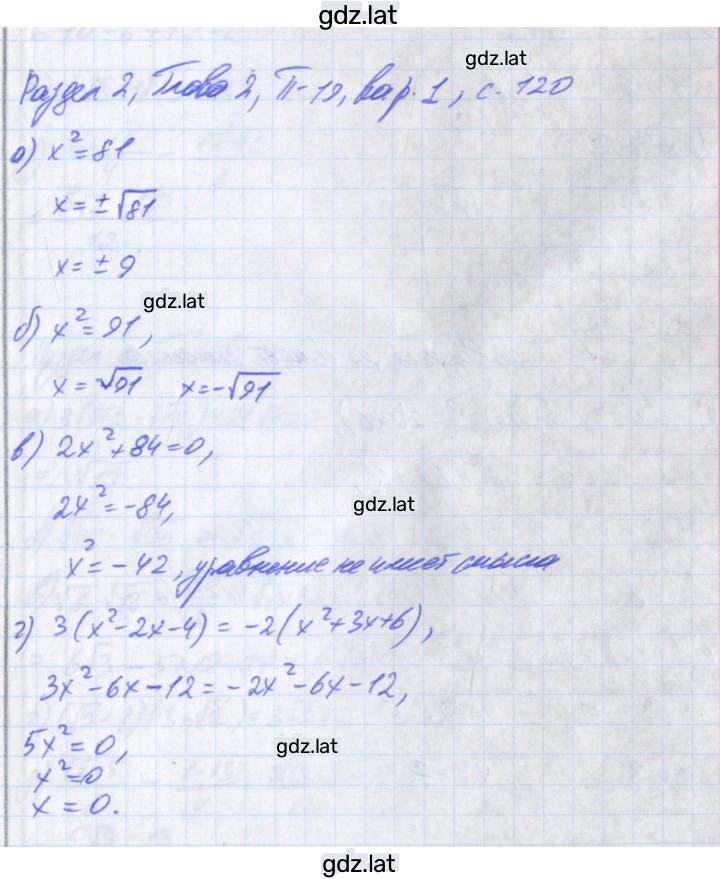 gdz.lat
gdz.lat
Раздел 2, Глава 2, П-19, вар. 1, с. 120
а) x² = 81
x = ±√81
x = ±9
gdz.lat
б) x² = 91,
x = √91 x = -√91
в) 2x² + 84 = 0,
gdz.lat
2x² = -84,
x² = -42, уравнение не имеет смысла
г) 3(x² - 2x - 4) = -2(x² + 3x + 6),
3x² - 6x - 12 = -2x² - 6x - 12,
5x² = 0,
gdz.lat
x² = 0
x = 0.
gdz.lat